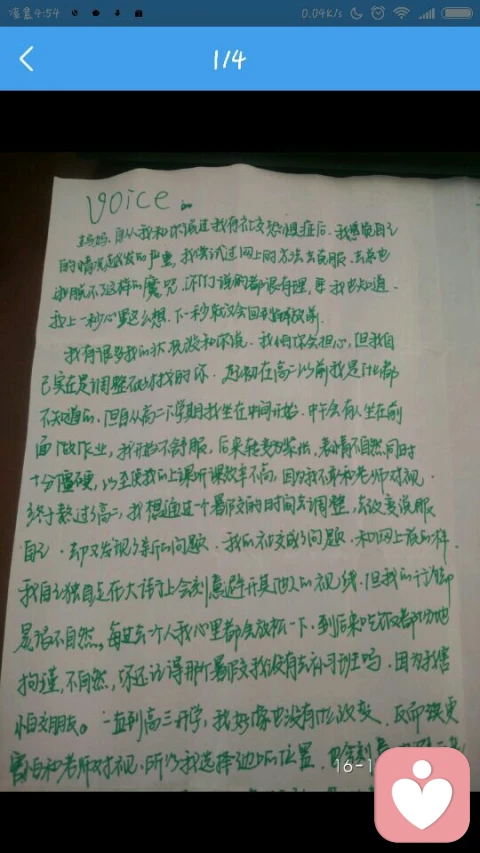 凌晨4:54
0.04K/s
1/4
voice
妈妈,自从我和你说过我有社交恐惧症后,我感觉自己
的情况越发的严重,我尝试过网上的方法去克服,去
摆脱不了这样的魔咒,你们说的都很有理,我也知道,
我上一秒心里这么想,下一秒就又会回到解放前。
我有很多我的状况没和你说,我怕你会担心,但我自
己实在是调整不好找的你,起初在高二以前我是什么都
不知道的,但自从高二下学期我坐在中间开始,中午会有人坐在前
面做作业,我开始不舒服,后来转变为紧张,表情不自然,同时
十分僵硬,以至使我的上课听课效率不高,因为我不敢和老师对视,
终于熬过了高二,我想通过一个暑假的时间去调整,去改变说服
自己,却又发现了新的问题,我的社交成了问题,和网上说的一样,
我自己独自走在大街上会刻意避开其他人的视线,但我的行为却
显得不自然,每过去一个人我心里都会放松一下,到后来吃饭都
拘谨,不自然,你还记得那个暑假我没有去补习班吗,因为我害
怕交朋友。一直到高三开学,我好像也没有什么改变,反而变更
害怕和老师对视,所以我选择边上的位置,
16-1